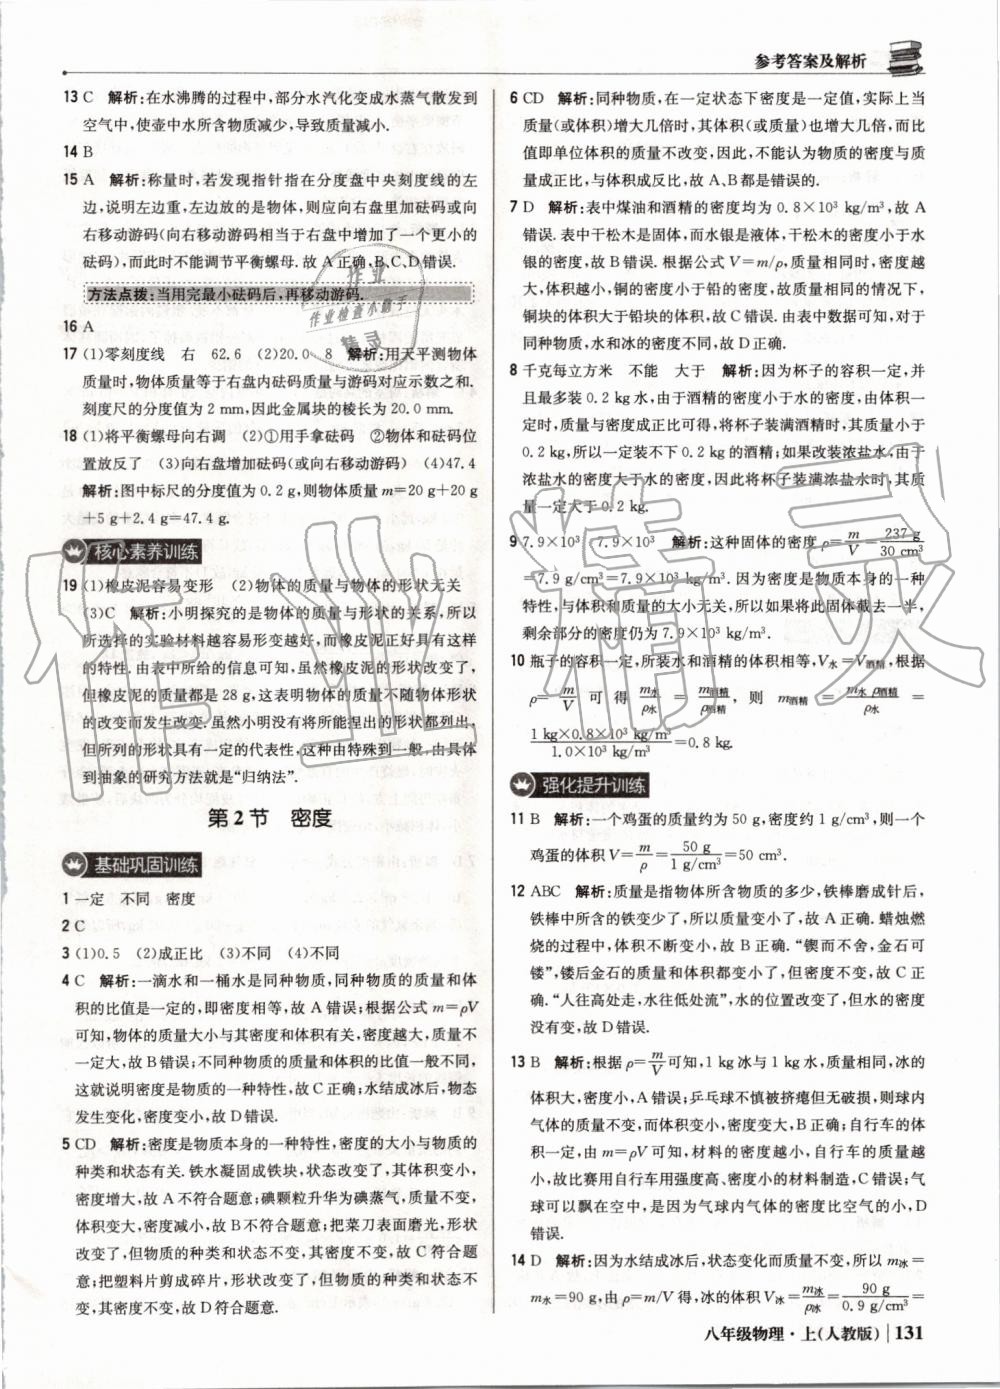 参考答案及解析
13 C 解析:在水沸腾的过程中,部分水汽化变成水蒸气散发到
空气中,使壶中水所含物质减少,导致质量减小.
14 B
15 A 解析:称量时,若发现指针指在分度盘中央刻度线的左
边,说明左边重,左边放的是物体,则应向右盘里加砝码或向
右移动游码(向右移动游码相当于右盘中增加了一个更小的
砝码),而此时不能调节平衡螺母.故 A 正确,B、C、D 错误.
方法点拨:当用完最小砝码后,再移动游码.
16 A
17 (1)零刻度线 右 62.6 (2)20.0 8 解析:用天平测物体
质量时,物体质量等于右盘内砝码质量与游码对应示数之和.
刻度尺的分度值为 2 mm,因此金属块的棱长为 20.0 mm.
18 (1)将平衡螺母向右调 (2)①用手拿砝码 ②物体和砝码位
置放反了 (3)向右盘增加砝码(或向右移动游码) (4)47.4
解析:图中标尺的分度值为 0.2 g,则物体质量 m=20 g+20 g
+5 g+2.4 g=47.4 g.
核心素养训练
19 (1)橡皮泥容易变形 (2)物体的质量与物体的形状无关
(3)C 解析:小明探究的是物体的质量与形状的关系,所以
所选择的实验材料越容易形变越好,而橡皮泥正好具有这样
的特性.由表中所给的信息可知,虽然橡皮泥的形状改变了,
但橡皮泥的质量都是 28 g,这表明物体的质量不随物体形状
的改变而发生改变.虽然小明没有将所能捏出的形状都列出,
但所列的形状具有一定的代表性,这种由特殊到一般,由具体
到抽象的研究方法就是“归纳法”.
第 2 节 密度
基础巩固训练
1 一定 不同 密度
2 C
3 (1)0.5 (2)成正比 (3)不同 (4)不同
4 C 解析:一滴水和一桶水是同种物质,同种物质的质量和体
积的比值是一定的,即密度相等,故 A 错误;根据公式 m=ρV
可知,物体的质量大小与其密度和体积有关,密度越大,质量不
一定大,故 B 错误;不同种物质的质量和体积的比值一般不同,
这就说明密度是物质的一种特性,故 C 正确;水结成冰后,物态
发生变化,密度变小,故 D 错误.
5 CD 解析:密度是物质本身的一种特性,密度的大小与物质的
种类和状态有关.铁水凝固成铁块,状态改变了,其体积变小,
密度增大,故 A 不符合题意;碘颗粒升华为碘蒸气,质量不变,
体积变大,密度减小,故 B 不符合题意;把菜刀表面磨光,形状
改变了,但物质的种类和状态不变,其密度不变,故 C 符合题
意;把塑料片剪成碎片,形状改变了,但物质的种类和状态不变,
其密度不变,故 D 符合题意.
6 CD 解析:同种物质,在一定状态下密度是一定值,实际上当
质量(或体积)增大几倍时,其体积(或质量)也增大几倍,而比
值即单位体积的质量不改变,因此,不能认为物质的密度与质
量成正比,与体积成反比,故 A、B 都是错误的.
7 D 解析:表中煤油和酒精的密度均为 0.8×10³ kg/m³,故 A
错误.表中干松木是固体,而水银是液体,干松木的密度小于水
银的密度,故 B 错误.根据公式 V=m/ρ,质量相同时,密度越
大,体积越小,铜的密度小于铅的密度,故质量相同的情况下,
铜块的体积大于铅块的体积,故 C 错误.由表中数据可知,对于
同种物质,水和冰的密度不同,故 D 正确.
8 千克每立方米 不能 大于 解析:因为杯子的容积一定,并
且最多装 0.2 kg 水,由于酒精的密度小于水的密度,由体积一
定时,质量与密度成正比可得,将杯子装满酒精时,其质量小于
0.2 kg,所以一定装不下 0.2 kg 的酒精;如果改装浓盐水,由于
浓盐水的密度大于水的密度,因此将杯子装满浓盐水时,其质
量一定大于 0.2 kg.
9 7.9×10³ 7.9×10³ 解析:这种固体的密度 ρ=m/V=237 g/30 cm³
=7.9 g/cm³=7.9×10³ kg/m³.因为密度是物质本身的一种
特性,与体积和质量的大小无关,所以如果将此固体截去一半,
剩余部分的密度仍为 7.9×10³ kg/m³.
10 瓶子的容积一定,所装水和酒精的体积相等,V水=V酒精,根据
ρ=m/V 可得 m水/ρ水=m酒精/ρ酒精,则 m酒精=m水ρ酒精/ρ水=
1 kg×0.8×10³ kg/m³/1.0×10³ kg/m³=0.8 kg.
强化提升训练
11 B 解析:一个鸡蛋的质量约为 50 g,密度约 1 g/cm³,则一个
鸡蛋的体积 V=m/ρ=50 g/1 g/cm³=50 cm³.
12 ABC 解析:质量是指物体所含物质的多少,铁棒磨成针后,
铁棒中所含的铁变少了,所以质量变小了,故 A 正确.蜡烛燃
烧的过程中,体积不断变小,故 B 正确.“锲而不舍,金石可
镂”,镂后金石的质量和体积都变小了,但密度不变,故 C 正
确.“人往高处走,水往低处流”,水的位置改变了,但水的密度
没有变,故 D 错误.
13 B 解析:根据 ρ=m/V可知,1 kg 冰与 1 kg 水,质量相同,冰的
体积大,A 错误;乒乓球不慎被挤瘪但无破损,则球内
气体的质量不变,而体积变小,密度变大,B 正确;自行车的体
积一定,由 m=ρV 可知,材料的密度越大,自行车的质量越
大,故比赛用自行车用强度高、密度小的材料制造,C 错误;气
球可以飘在空中,是因为气球内气体的密度比空气的小,D
错误.
14 D 解析:因为水结成冰后,状态变化而质量不变,所以 m冰=
m水=90 g,由 ρ=m/V 得,冰的体积 V冰=m冰/ρ冰=90 g/0.9 g/cm³=
八年级物理·上(人教版) 131
作业精灵
作业
作业检查小助手
精灵